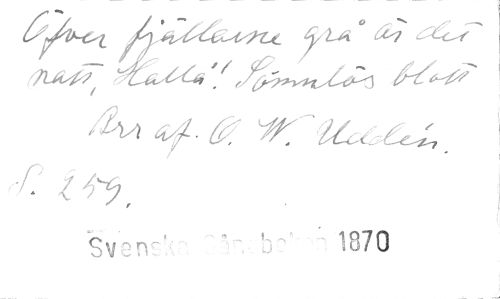 Öfver fjällarne grå är det
natt, Hallå! Sömnlös blott
Arr af. O. W. Uddén.
S. 259.
Svenska Sångboken 1870